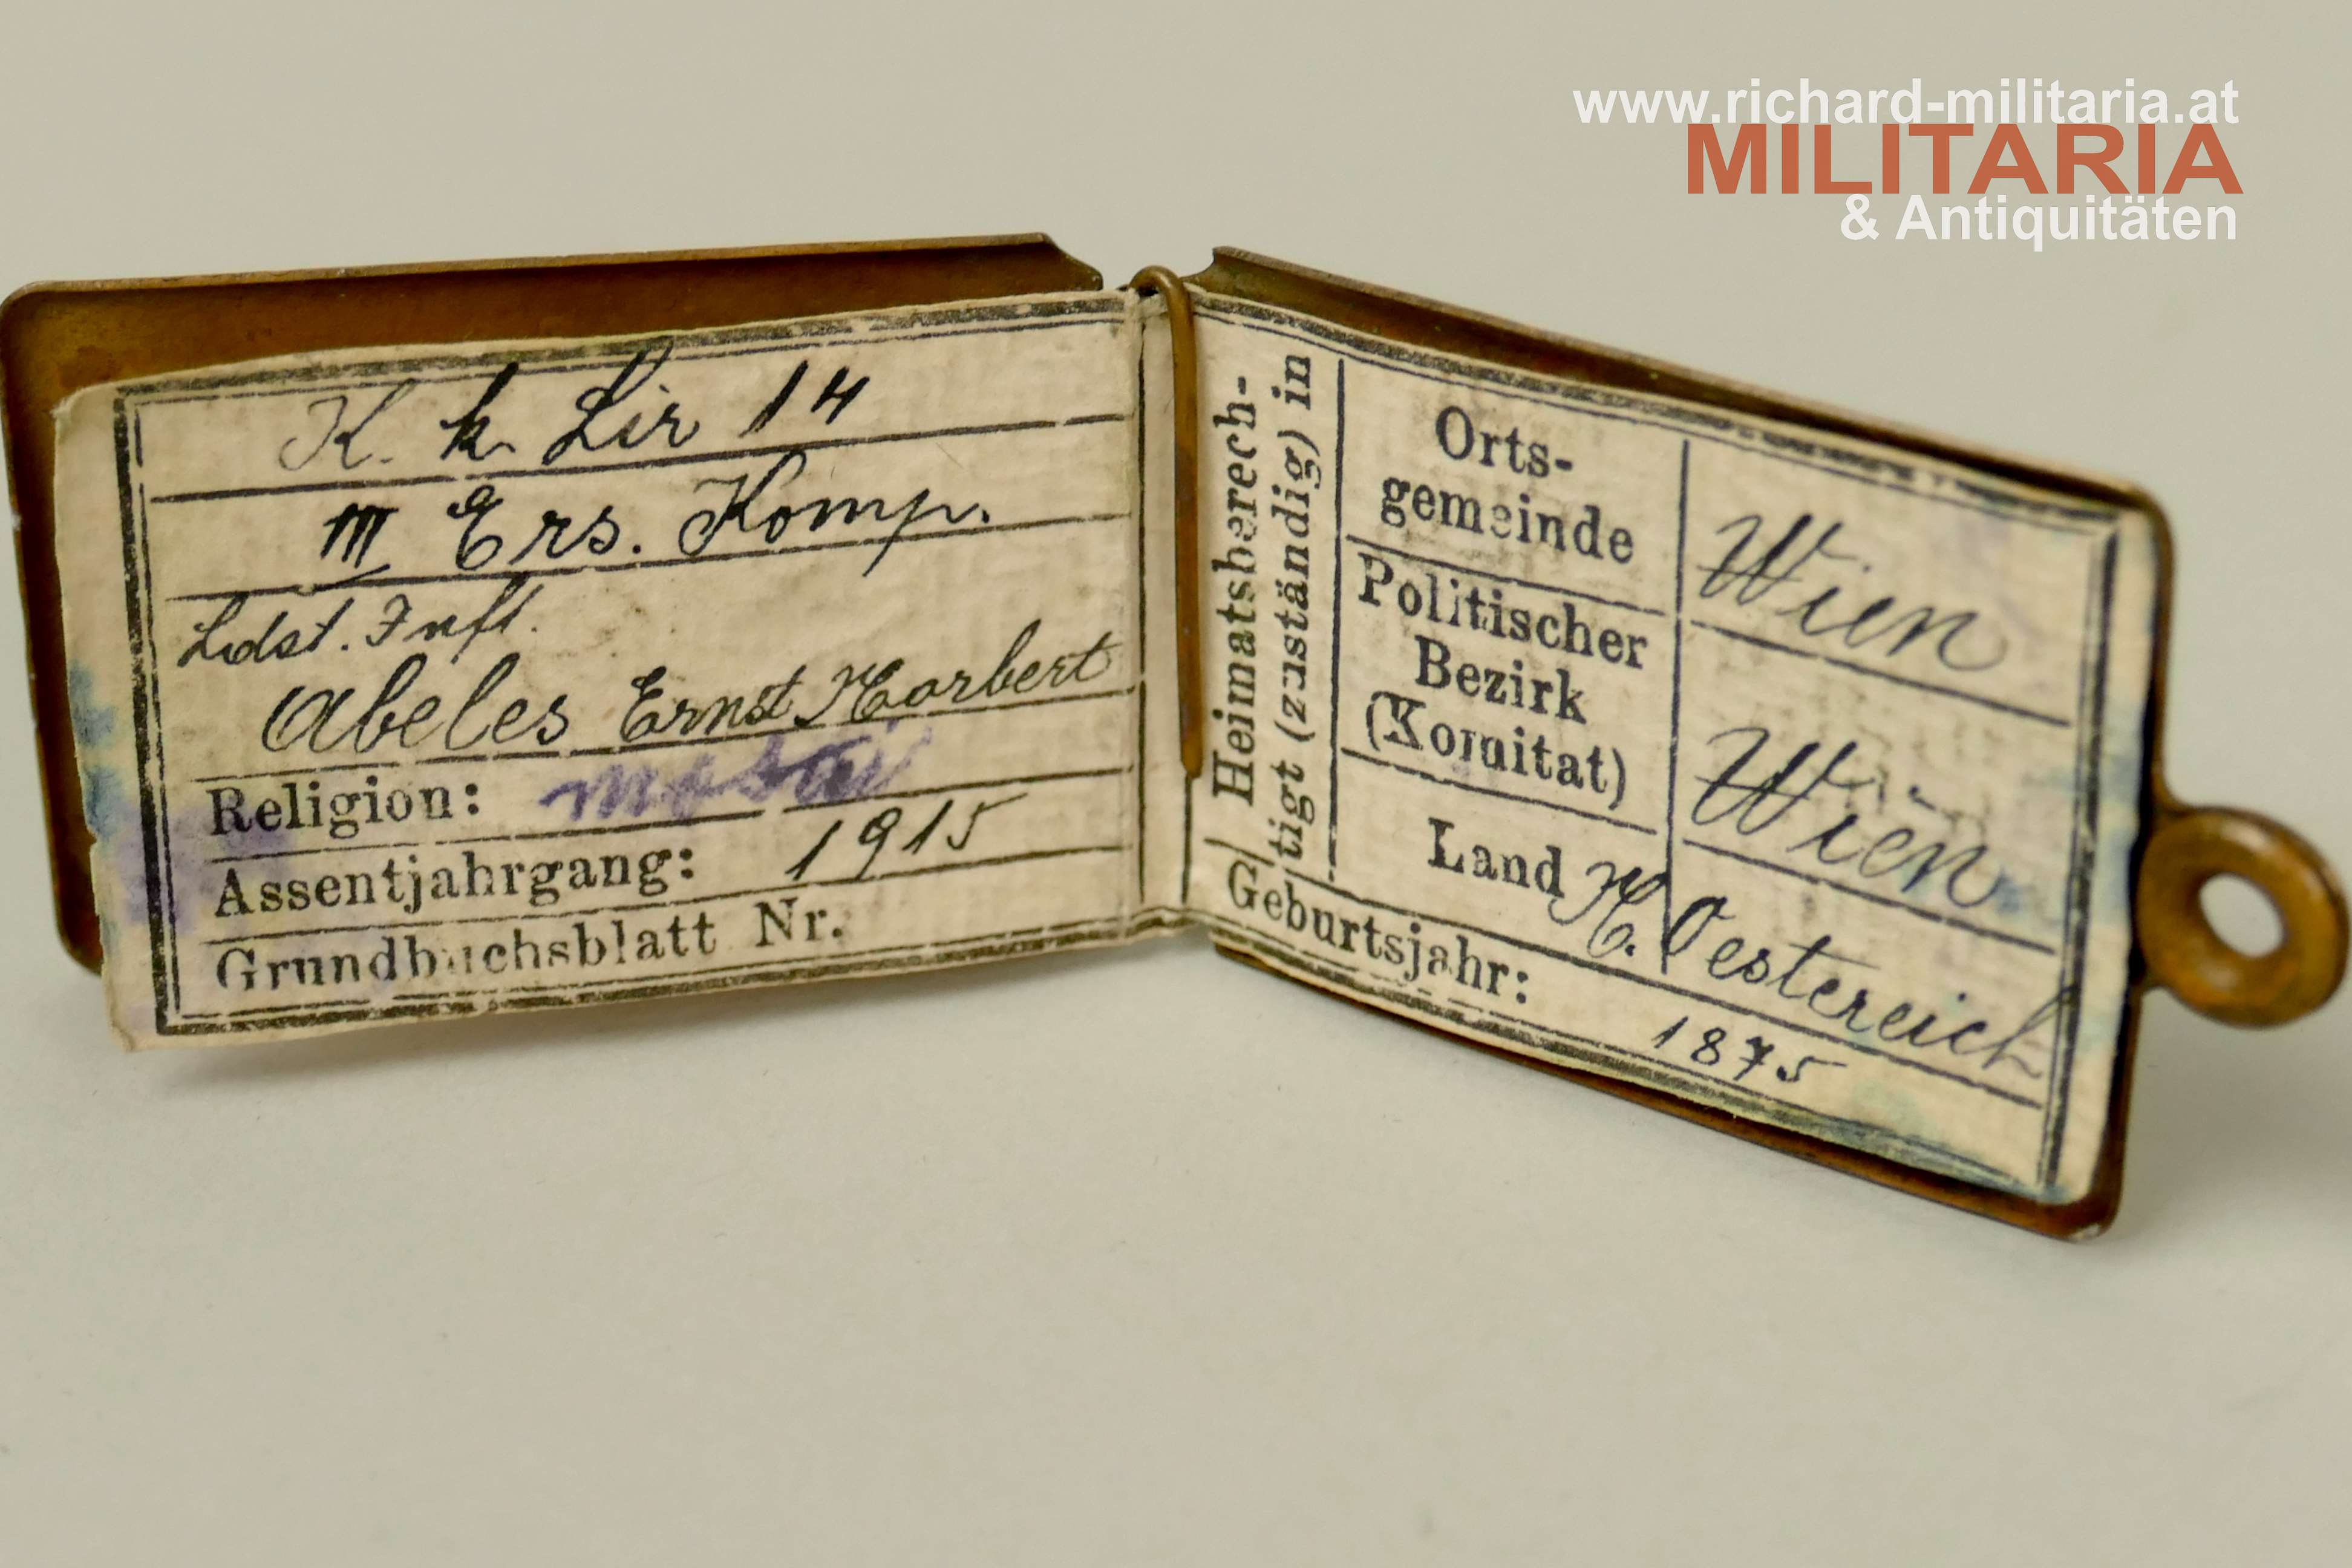 www.richard-militaria.at
MILITARIA
& Antiquitäten
K. k. Lir 14
III Ers. Komp.
Ldst. Inft.
Abeles Ernst Norbert
Religion: mosai
Assentjahrgang: 1915
Grundbuchsblatt Nr.
Heimatsberech-
tigt (zuständig) in
Orts-
gemeinde
Wien
Politischer
Bezirk
(Komitat)
Wien
Land N. Oestereich
Geburtsjahr:
1875